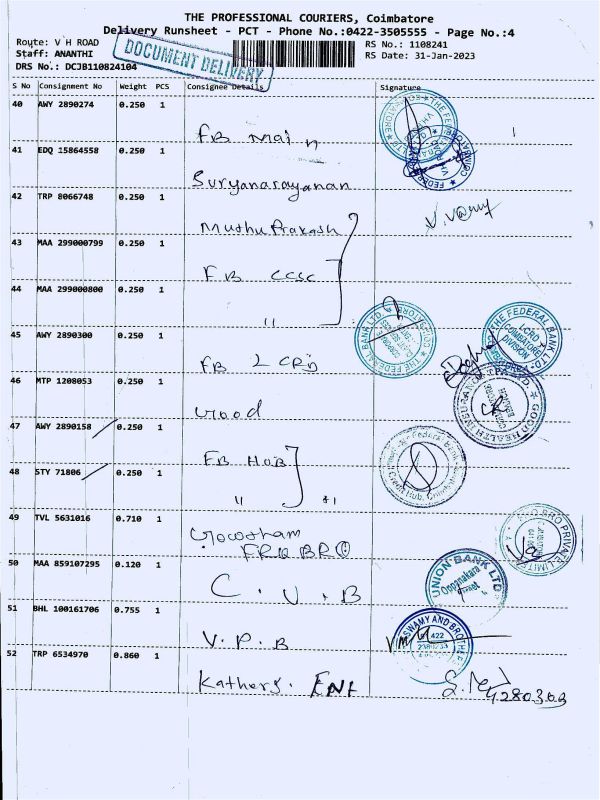 THE PROFESSIONAL COURIERS, Coimbatore
Delivery Runsheet - PCT - Phone No.:0422-3505555 - Page No.:4
Route: V H ROAD
RS No.: 1108241
Staff: ANANTHI
RS Date: 31-Jan-2023
DRS No.: DCJB110824104
DOCUMENT DELIVERY
S No Consignment No Weight PCS Consignee Details Signature
40 AWY 2890274 0.250 1
FB main
41 EDQ 15864558 0.250 1
Suryanarayanan
42 TRP 8066748 0.250 1
Muthu Prakash
43 MAA 299000799 0.250 1
FB CCSC
44 MAA 299000800 0.250 1
"
45 AWY 2890300 0.250 1
FB LCRD
THE FEDERAL BANK LTD.
LCRD
COIMBATORE
DIVISION
46 MTP 1208053 0.250 1
Good
GOOD HEALTH INSURANCE
47 AWY 2890158 0.250 1
FB HUB
48 STY 71806 0.250 1
" "
49 TVL 5631016 0.710 1
Gowtham
BRO PRIVATE LIMITED
50 MAA 859107295 0.120 1
C.U.B
UNION BANK LTD
51 BHL 100161706 0.755 1
V.P.B
SWAMY AND BROTHE
52 TRP 6534970 0.860 1
Kathers. Ent